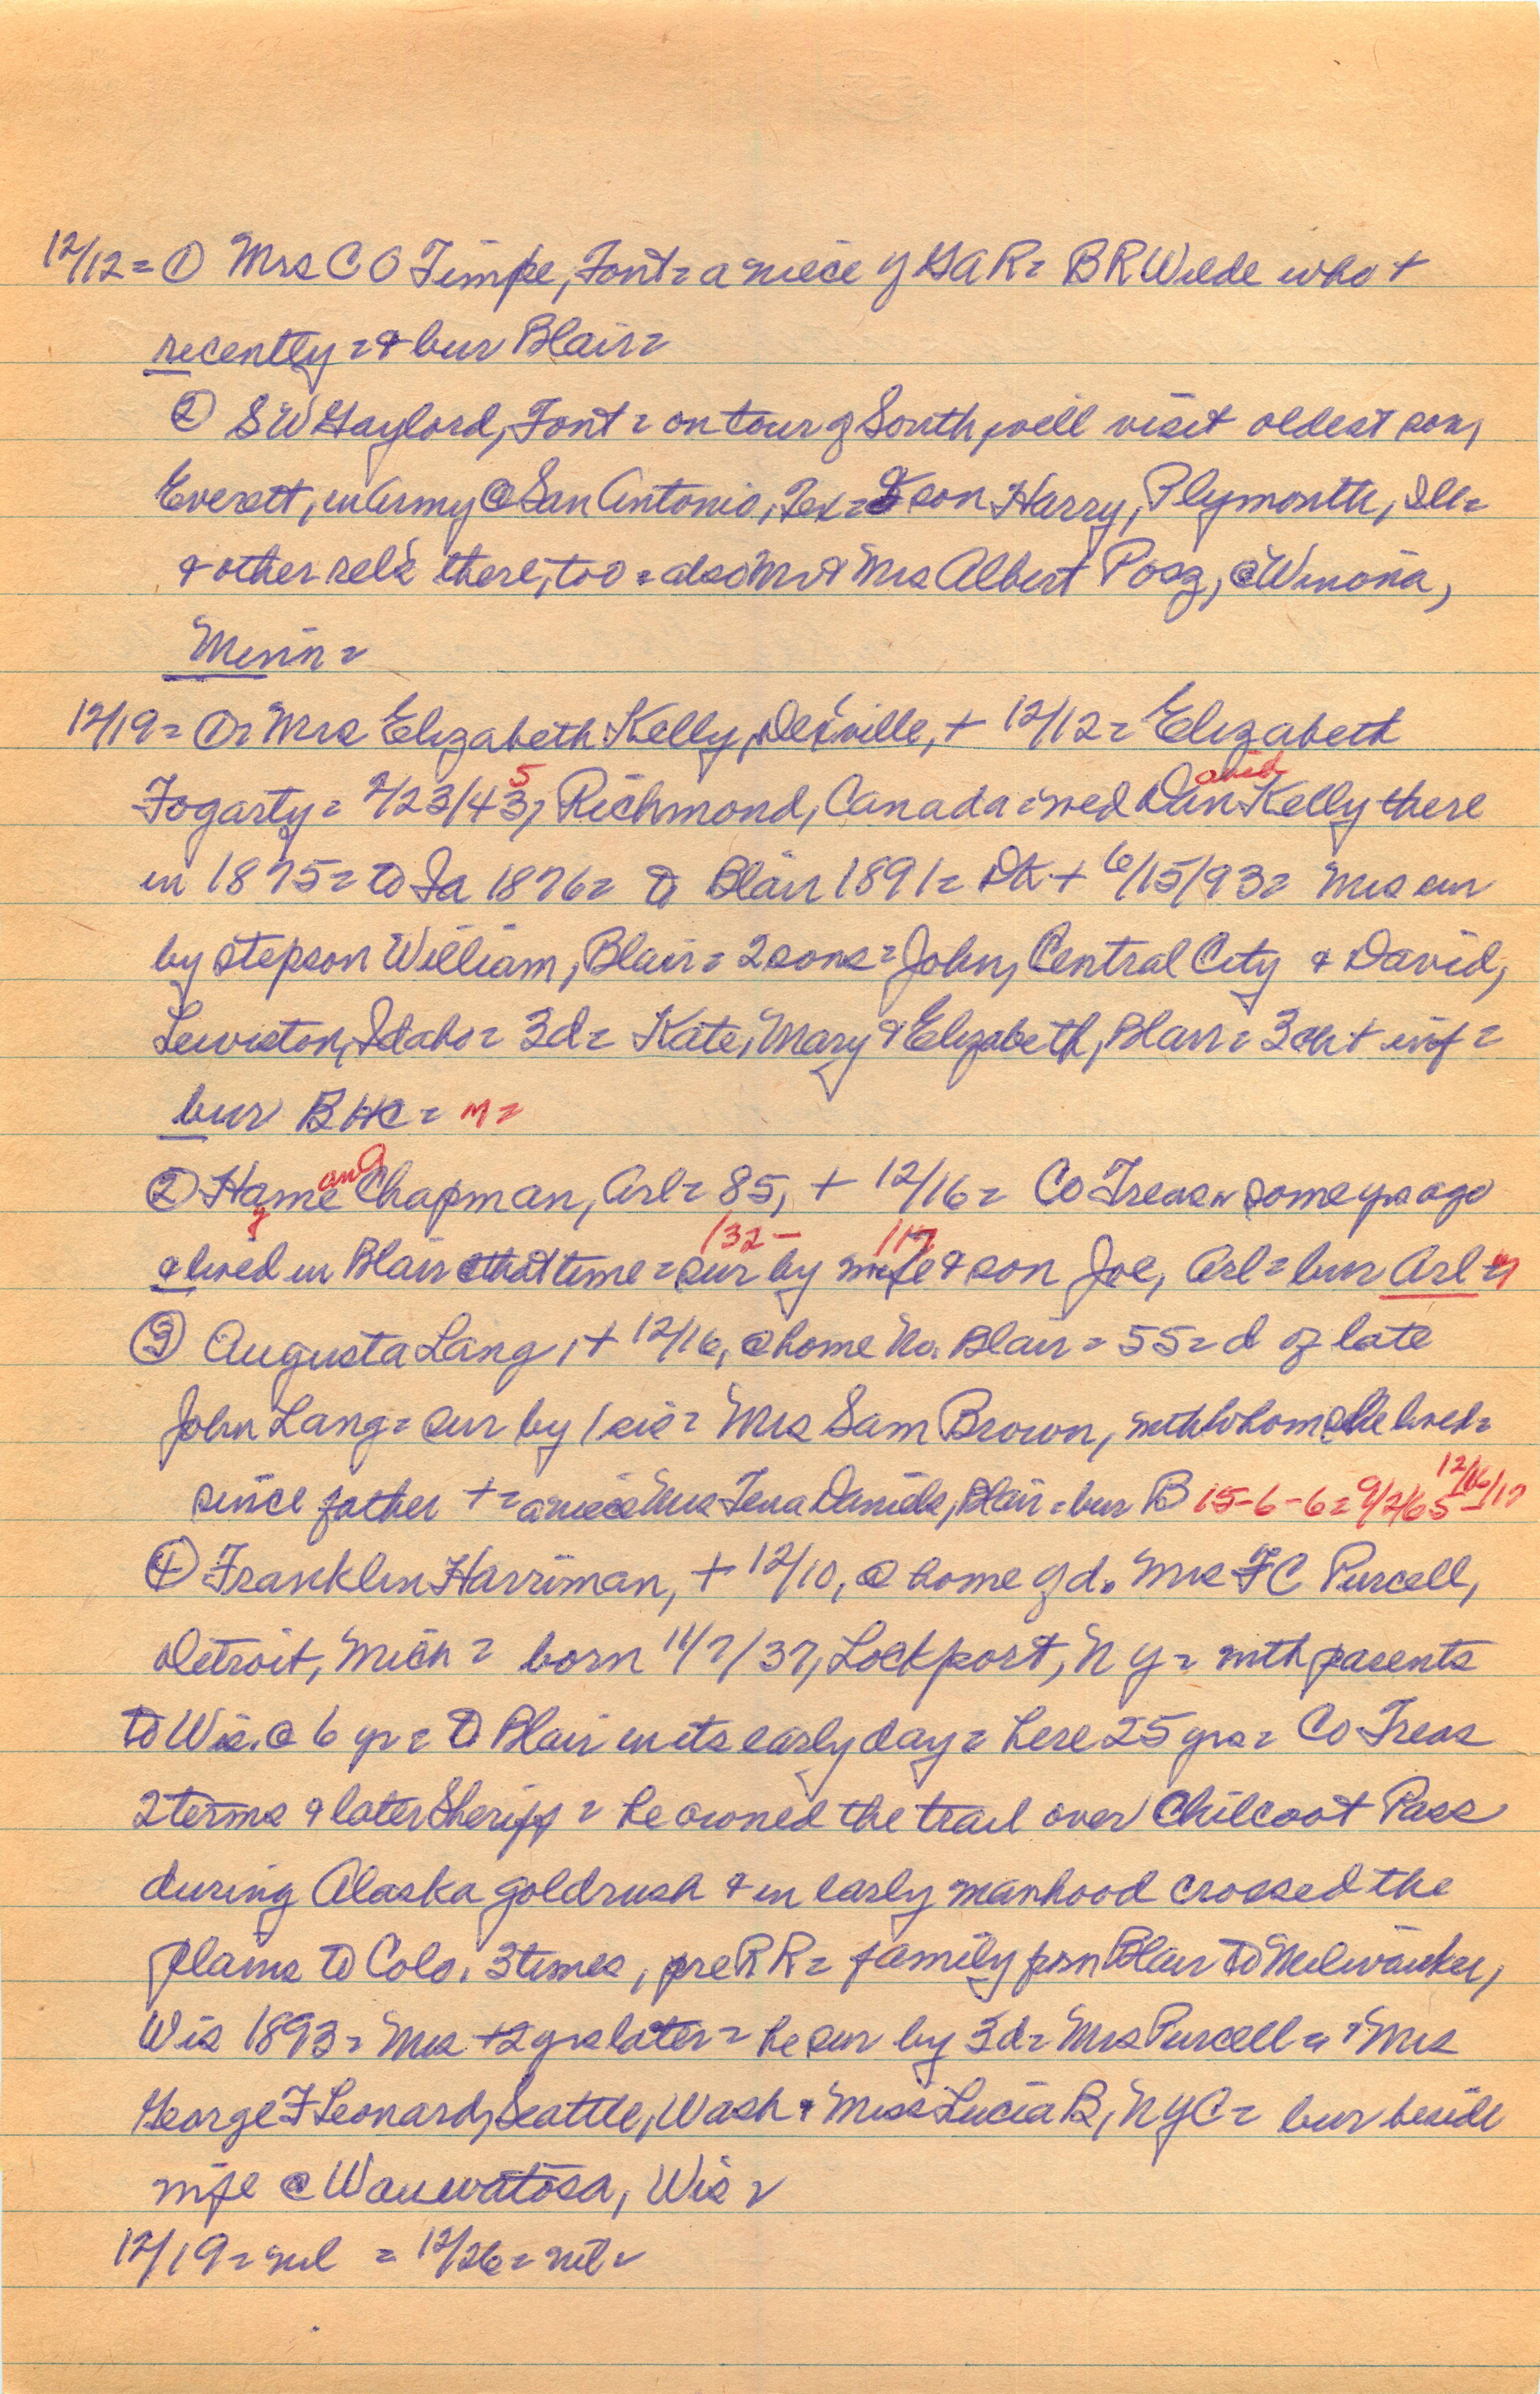 12/12 = ① Mrs C O Timpe, Font = a niece of GAR = B R Wilde who +
recently = & bur Blair =
② S W Gaylord, Font = on tour of South, will visit oldest son,
Everett, in Army @ San Antonio, Tex = & son Harry, Plymouth, Ill =
& other rel's there, too = also Mr & Mrs Albert Posz, @ Winona,
Minn =
12/19 = ① = Mrs Elizabeth Kelly, DeSville, + 12/12 = Elizabeth
5 avid
Fogarty = 2/23/43, Richmond, Canada = wed Dan Kelly there
in 1875 = to Ia 1876 = to Blair 1891 = DK + 6/15/93 = Mrs sur
by stepson William, Blair = 2 sons = John, Central City & David,
Lewiston, Idaho = 3 d = Kate, Mary & Elizabeth, Blair = 3 ch + inf =
bur BHC = M =
② Hame Chapman, Arl = 85, + 12/16 = Co Treas some yrs ago
132 - 117
& lived in Blair @ that time = sur by wife & son Joe, Arl = bur Arl = M
③ Augusta Lang, + 12/16, @ home No. Blair = 55 = d of late
John Lang = sur by 1 sis = Mrs Sam Brown, with whom she lived =
since father + = a niece Mrs Tena Daniels, Blair = bur B 15-6-6 = 9/2/65 - 12/16/17
④ Franklin Harriman, + 12/10, @ home of d. Mrs F C Purcell,
Detroit, Mich = born 11/7/37, Lockport, N Y = with parents
to Wis. @ 6 yr = to Blair in its early day = here 25 yrs = Co Treas
2 terms & later Sheriff = he owned the trail over Chilcoot Pass
during Alaska goldrush & in early manhood crossed the
plains to Colo. 3 times, pre RR = family from Blair to Milwaukee,
Wis 1893 = Mrs + 2 yrs later = he sur by 3 d = Mrs Purcell = & Mrs
George F Leonard, Seattle, Wash & Miss Lucia B, NYC = bur beside
wife @ Wauwatosa, Wis =
12/19 = nil = 12/26 = nil =